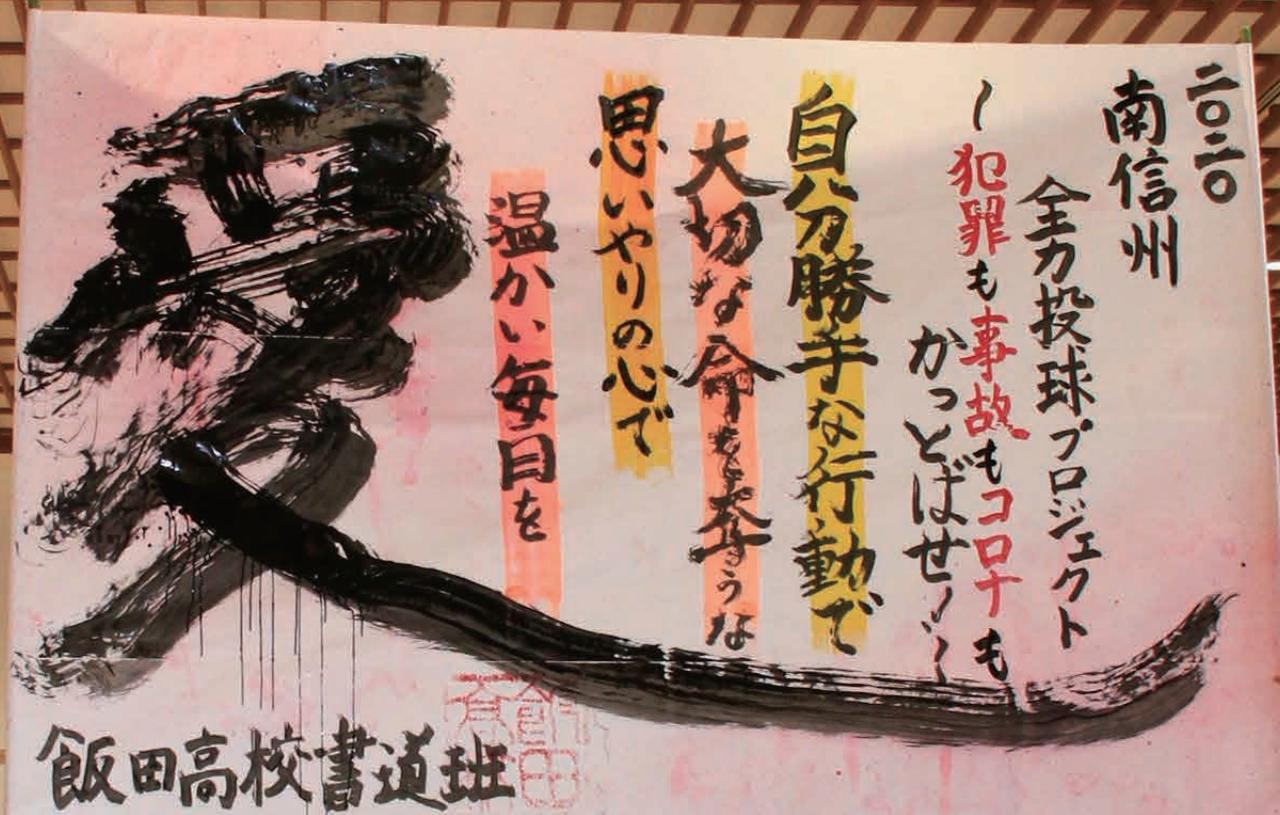 二〇二〇
南信州
全力投球プロジェクト
～犯罪も事故もコロナも
かっとばせ！！～
自分勝手な行動で
大切な命を奪うな
思いやりの心で
温かい毎日を
愛
飯田高校書道班